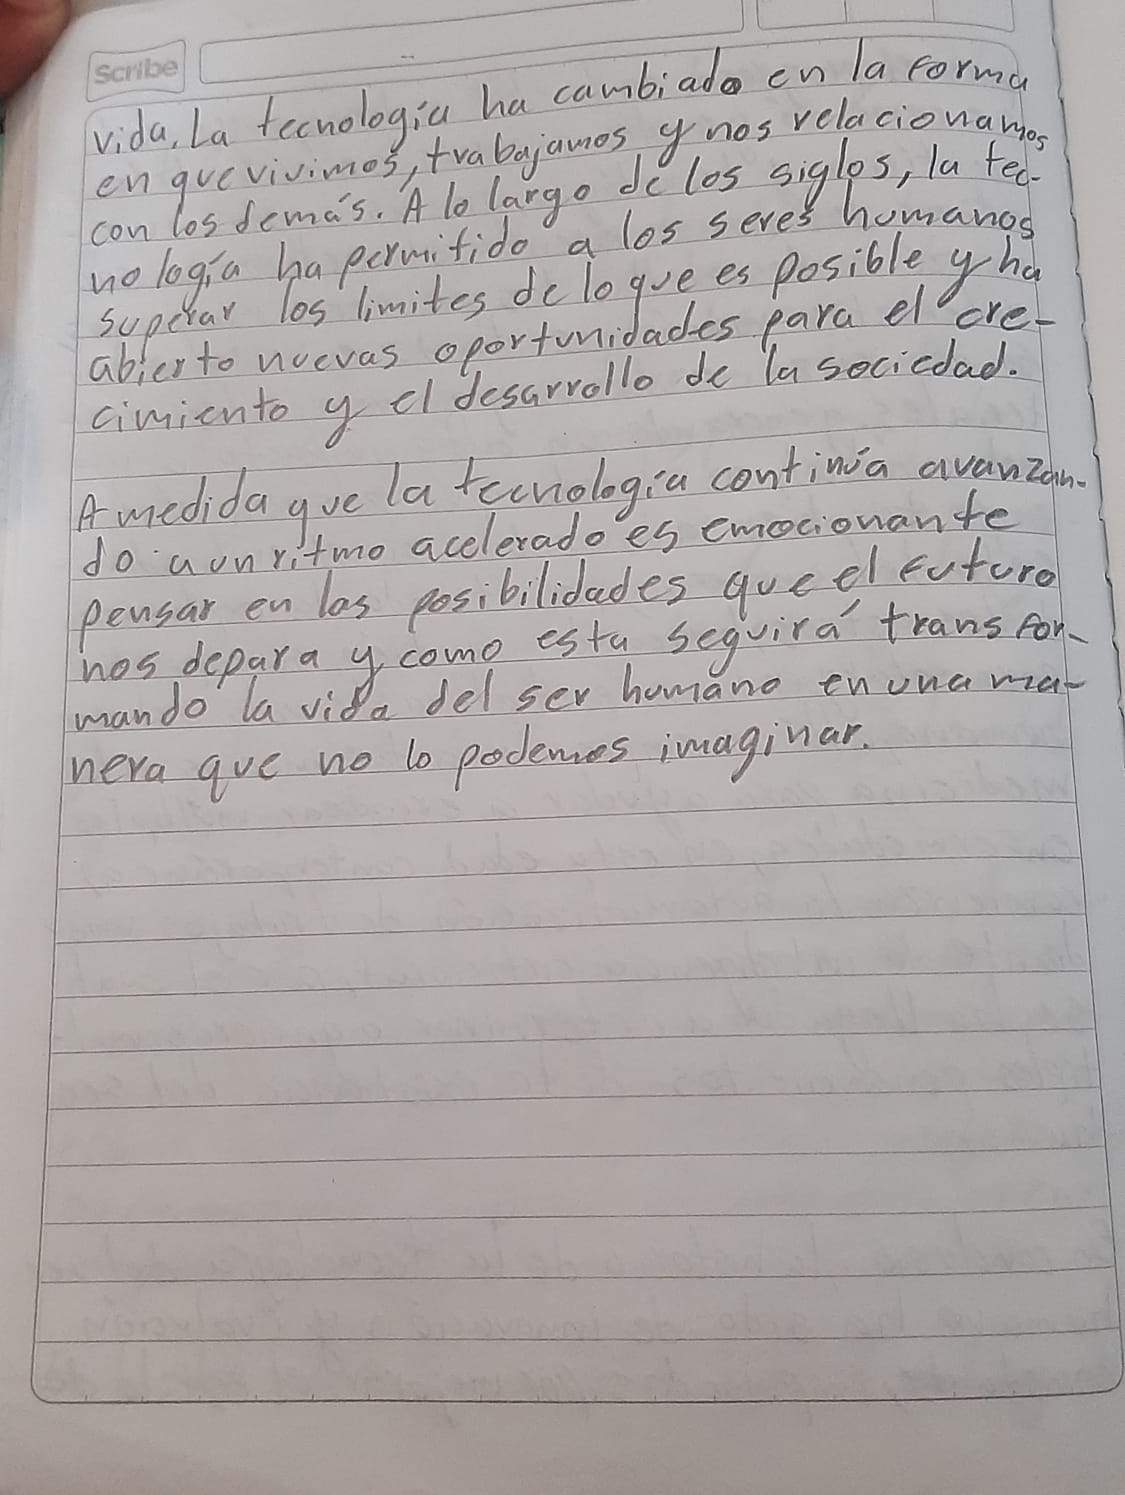 Scribe
vida, La tecnologia ha cambiado en la forma
en que vivimos, trabajamos y nos relacionamos
con los demás. A lo largo de los siglos, la tec-
nología ha permitido a los seres humanos
superar los limites de lo que es posible y ha
abierto nuevas oportunidades para el cre-
cimiento y el desarrollo de la sociedad.
A medida que la tecnologia continúa avanzan-
do a un ritmo acelerado es emocionante
pensar en las posibilidades que el futuro
nos depara y como esta seguirá transfor-
mando la vida del ser humano en una ma-
nera que no lo podemos imaginar.